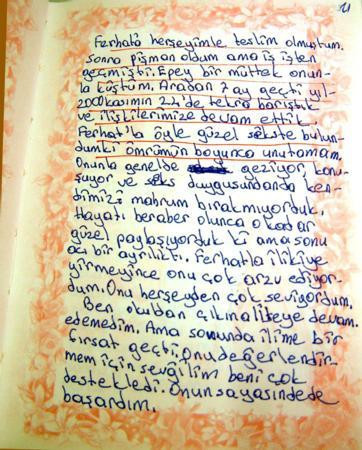 11
Ferhata herşeyimle teslim olmuştum.
Sonra pişman oldum ama iş işten
geçmişti. Epey bir müttek onun-
la küstüm. Aradan 7 ay geçti yıl-
2000 kasımın 24'de tekra barıştık
ve ilişkilerimize devam ettik.
Ferhat'la öyle güzel sekste bulun-
dumki ömrümün boyunca unutamam.
Onunla genelde geziyor, konu-
şuyor ve seks duygusundanda ken-
dimizi mahrum bırakmıyorduk.
Hayatı beraber olunca o kadar
güzel paylaşıyorduk ki ama sonu
acı bir ayrılıktı. Ferhatla ilikiye
girmeyince onu çok arzu ediyor-
dum. Onu herşeyden çok seviyordum.
Ben okuldan çıkınaliseye devam
edemedim. Ama somunda ilime bir
fırsat geçti. Onu değerlendir-
mem için sevgilim beni çok
destekledi. Onun sayasindede
başardım.